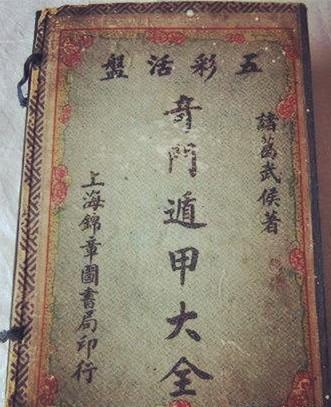 五彩活盤
諸葛武侯著
奇門遁甲大全
上海錦章圖書局印行